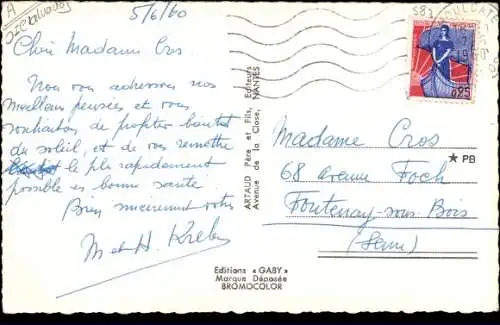 5/6/60
Chère Madame Cros.
Nous vous adressons nos
meilleures pensées et vous
souhaitons de profiter bientôt
du soleil, et de vous remettre
le plus rapidement
possible en bonne santé.
Bien sincèrement vôtre
M et H. Kreber
ARTAUD Père et Fils, Editeurs
Avenue de la Close, NANTES
Editions « GABY »
Marque Déposée
BROMOCOLOR
0,25
Madame Cros
★ PB
68 avenue Foch
Fontenay-sous-Bois
(Seine)